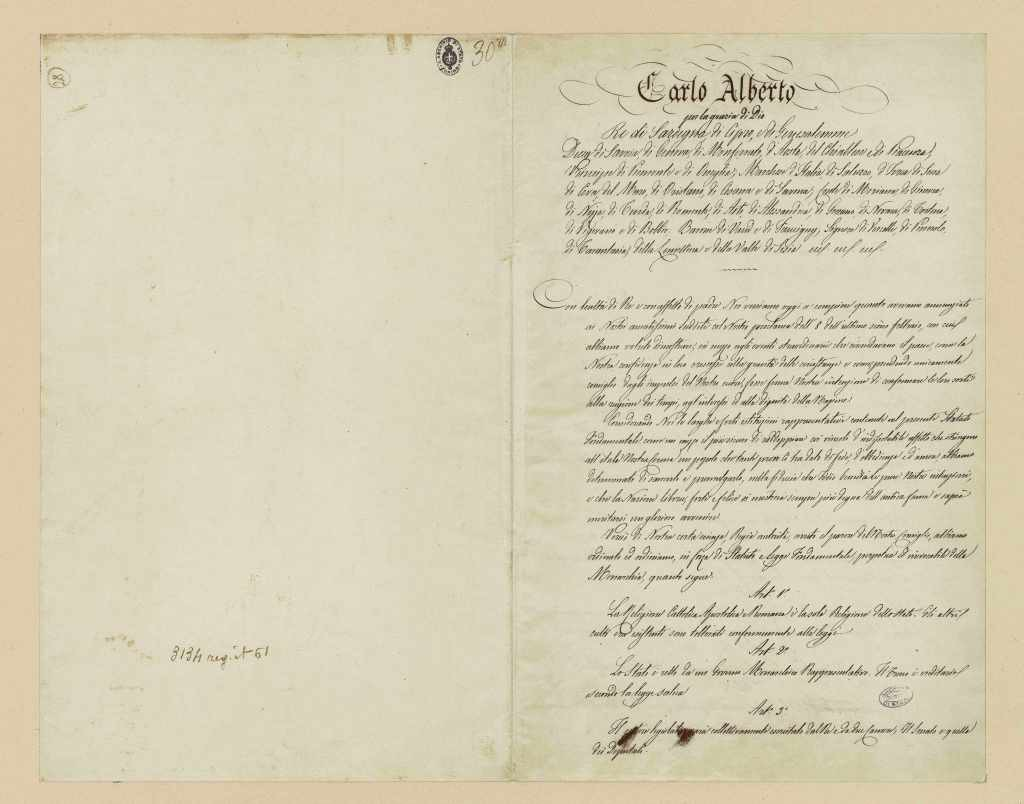 28
30
3134 reg. it 61
Carlo Alberto
per la grazia di Dio
Re di Sardegna, di Cipro, e di Gerusalemme
Duca di Savoia, di Genova, di Monferrato, d'Aosta, del Chiablese e di Piacenza;
Principe di Piemonte e di Oneglia; Marchese d'Italia, di Saluzzo, d'Ivrea, di Susa
di Ceva, del Maro, di Oristano, di Cesana e di Savona; Conte di Moriana, di Ginevra,
di Nizza, di Tenda, di Romonte, di Asti, di Alessandria, di Goceano, di Novara, di Tortona,
di Vigevano e di Bobbio. Barone di Vaud e di Faucigny; Signore di Vercelli, di Pinerolo,
di Tarantasia, della Lomellina e della Valle di Sesia
Con lealtà di Re e con affetto di padre Noi veniamo oggi a compiere quanto avevamo annunziato
ai Nostri amatissimi sudditi col Nostro proclama dell' 8 dell'ultimo scorso febbraio, con cui
abbiamo voluto dimostrare, in mezzo agli eventi straordinarii che circondavano il paese, come la
Nostra confidenza in loro crescesse colla gravità delle circostanze, e come prendendo unicamente
consiglio dagli impulsi del Nostro cuore, fosse ferma Nostra intenzione di conformare le loro sorti
alla ragione dei tempi, agl'interessi ed alla dignità della Nazione.
Considerando Noi le larghe e forti istituzioni rappresentative contenute nel presente Statuto
fondamentale come un mezzo il più sicuro di raddoppiare coi vincoli d'indissolubile affetto che stringono
all'itala Nostra Corona un popolo, che tante prove Ci ha dato di fede, d'obbedienza e d'amore, abbiamo
determinato di sancirlo e promulgarlo, nella fiducia che Iddio benedirà le pure Nostre intenzioni,
e che la Nazione libera, forte e felice si mostrerà sempre più degna dell'antica fama e saprà
meritarsi un glorioso avvenire.
Perciò di Nostra certa scienza, Regia autorità, avuto il parere del Nostro Consiglio, abbiamo
ordinato ed ordiniamo, in forza di Statuto e Legge fondamentale, perpetua ed irrevocabile della
Monarchia, quanto segue:
Art. 1°.
La Religione Cattolica Apostolica e Romana è la sola Religione dello Stato. Gli altri
culti ora esistenti sono tollerati conformemente alle leggi.
Art. 2°.
Lo Stato è retto da un Governo Monarchico Rappresentativo. Il Trono è ereditario
secondo la legge salica.
Art. 3°.
Il potere legislativo sarà collettivamente esercitato dal Re e da due Camere; Il Senato e quella
dei Deputati.